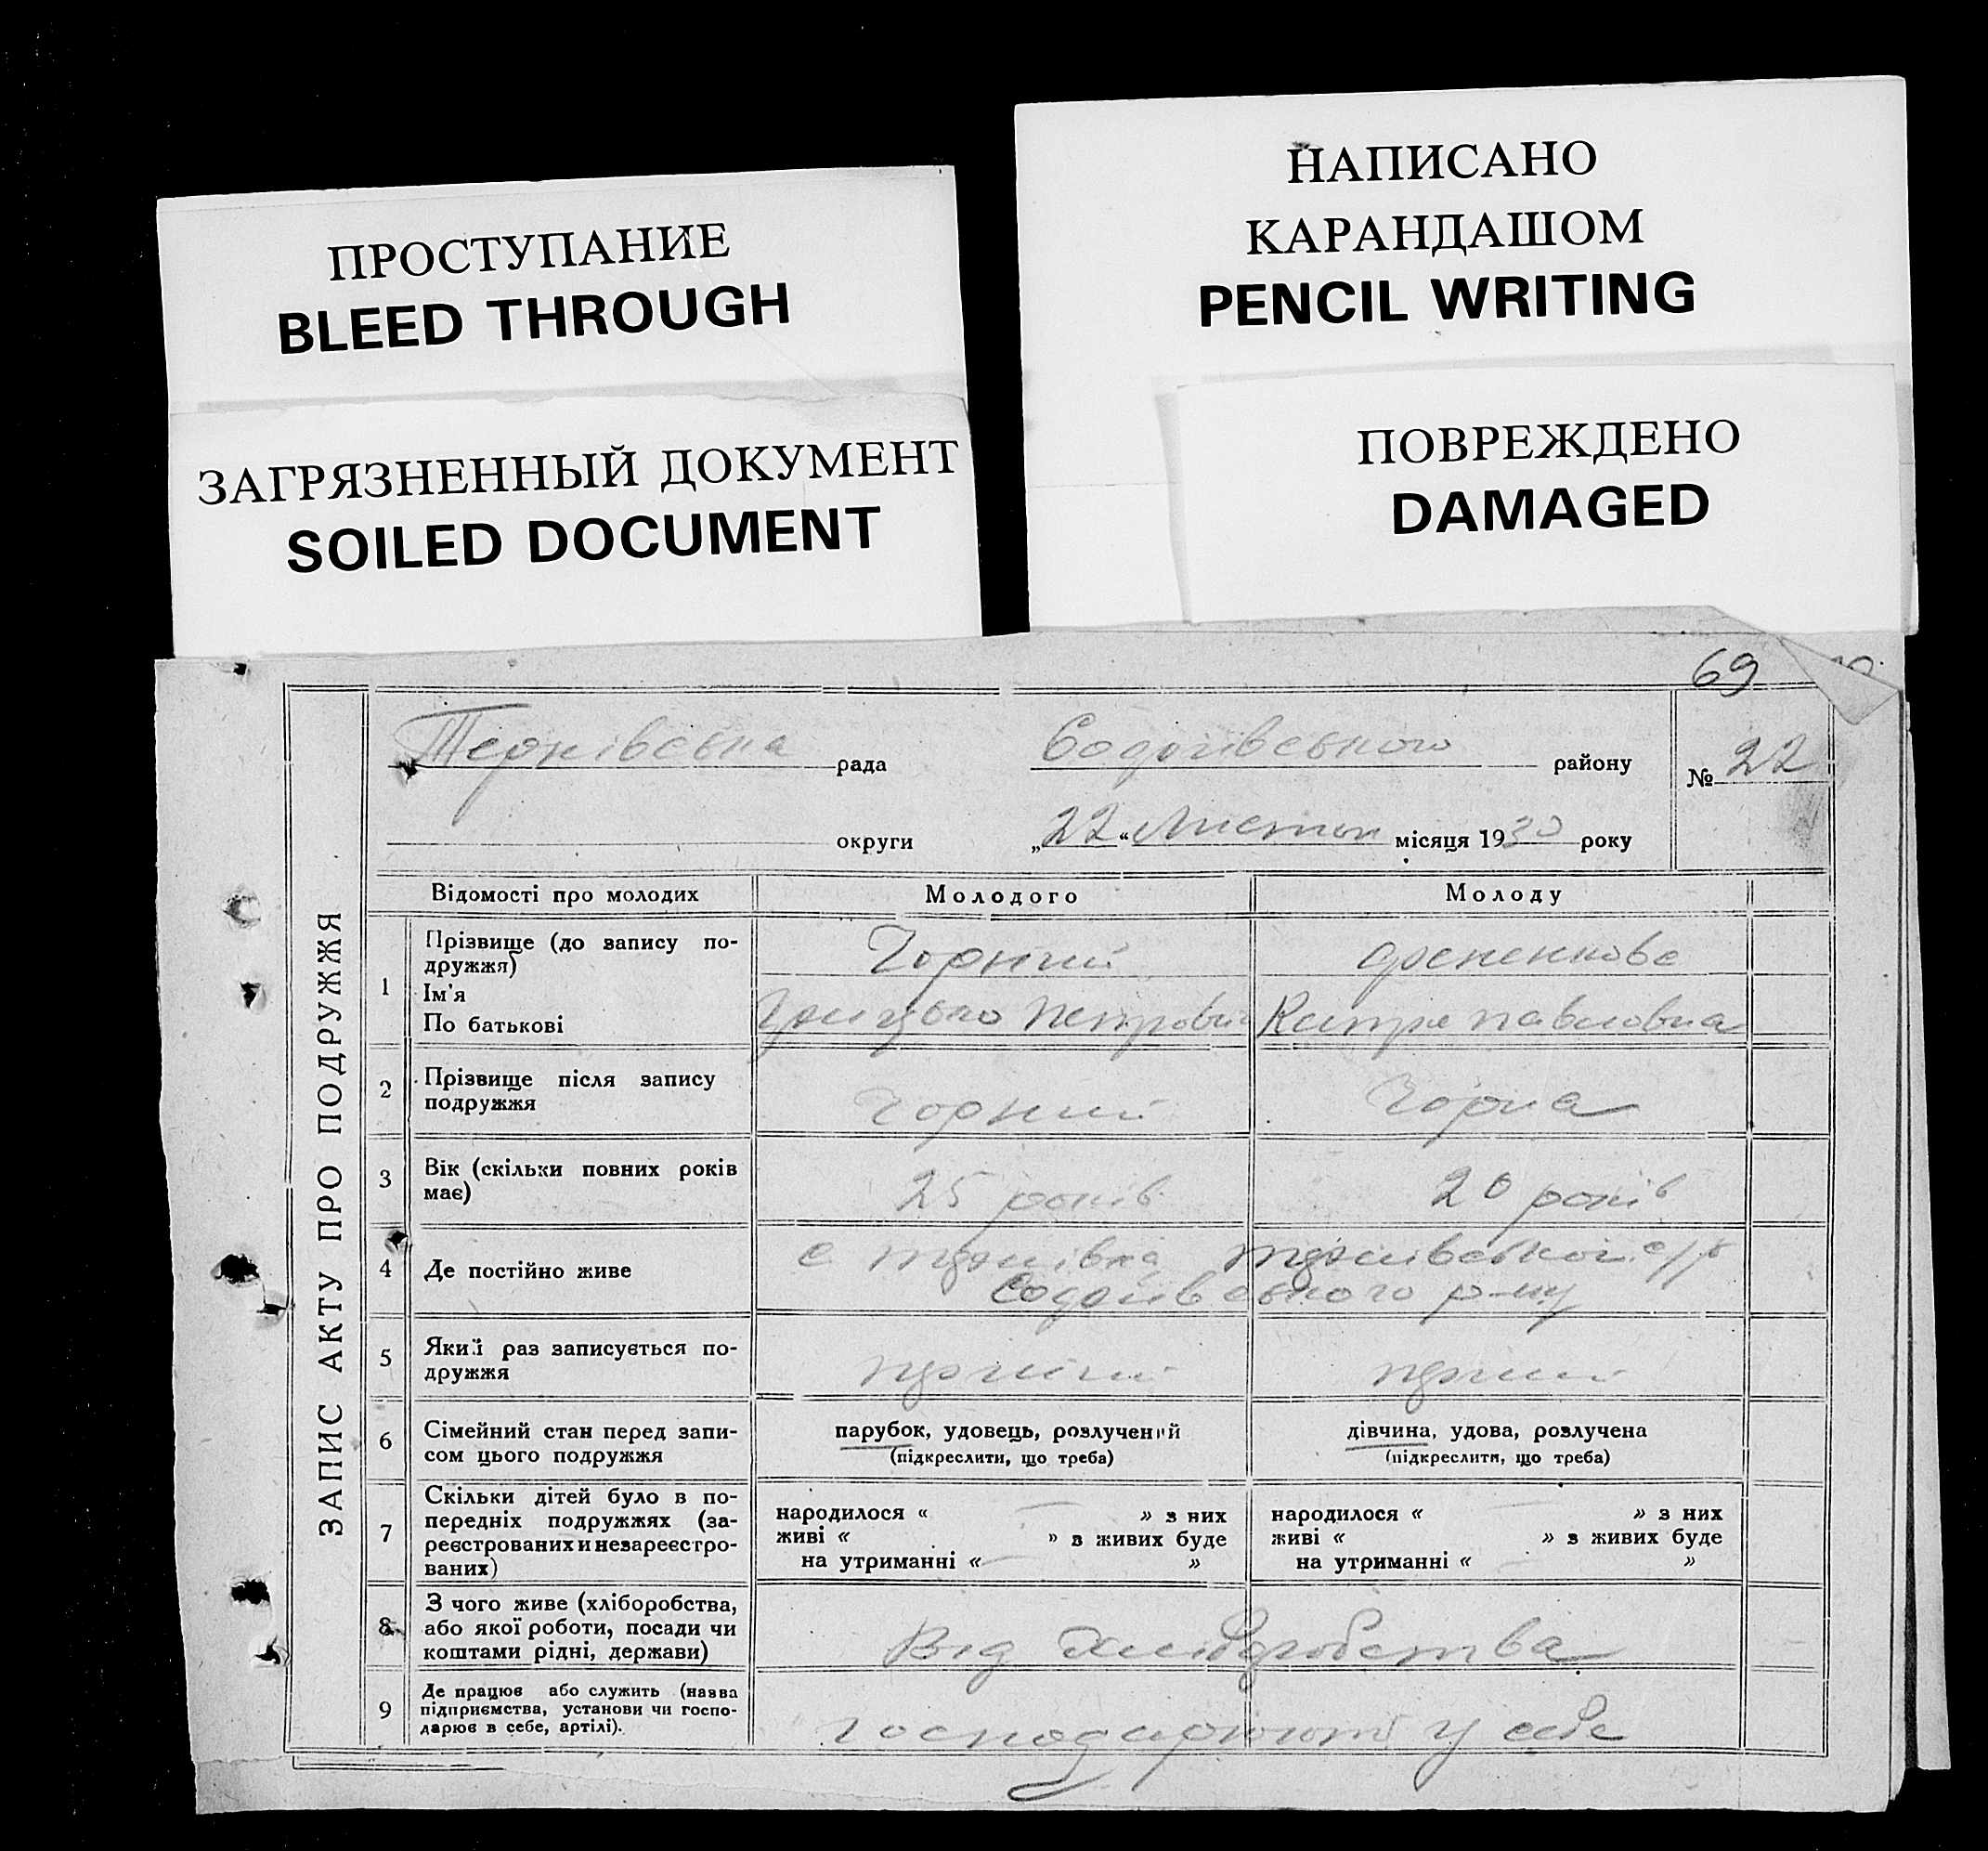 ПРОСТУПАНИЕ
BLEED THROUGH
ЗАГРЯЗНЕННЫЙ ДОКУМЕНТ
SOILED DOCUMENT
НАПИСАНО
КАРАНДАШОМ
PENCIL WRITING
ПОВРЕЖДЕНО
DAMAGED
69
ЗАПИС АКТУ ПРО ПОДРУЖЖЯ
Тернівська рада району № 22
округи „22“ Листоп місяця 1930 року
Відомості про молодих Молодого Молоду
1 Прізвище (до запису по-
дружжя) Чорний
Ім'я
По батькові Грицько Петрович Павловна
2 Прізвище після запису
подружжя Чорний Чорна
3 Вік (скільки повних років
має) 25 років 20 років
4 Де постійно живе с Тернівка Тернівської с/р
р-ну
5 Який раз записується по-
дружжя перший перший
6 Сімейний стан перед запи-
сом цього подружжя
парубок, удовець, розлучений
(підкреслити, що треба)
дівчина, удова, розлучена
(підкреслити, що треба)
7 Скільки дітей було в по-
передніх подружжях (за-
реєстрованих и незареєстро-
ваних)
народилося « » з них
живі « » з живих буде
на утриманні « »
народилося « » з них
живі « » з живих буде
на утриманні « »
8 З чого живе (хліборобства,
або якої роботи, посади чи
коштами рідні, держави) Від хліборобства
9 Де працює або служить (назва
підприємства, установи чи госпо-
дарює в себе, артілі). господарюють у себе